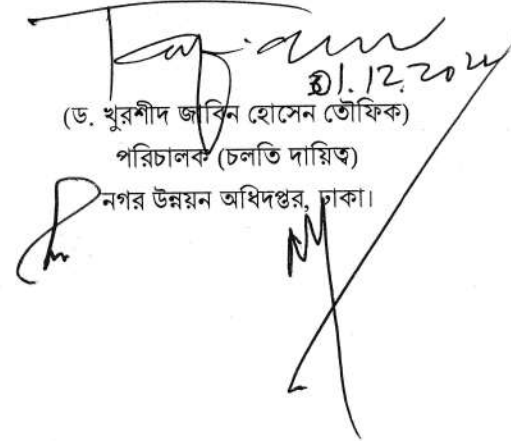 31.12.2024
(ড. খুরশীদ জাবিন হোসেন তৌফিক)
পরিচালক (চলতি দায়িত্ব)
নগর উন্নয়ন অধিদপ্তর, ঢাকা।